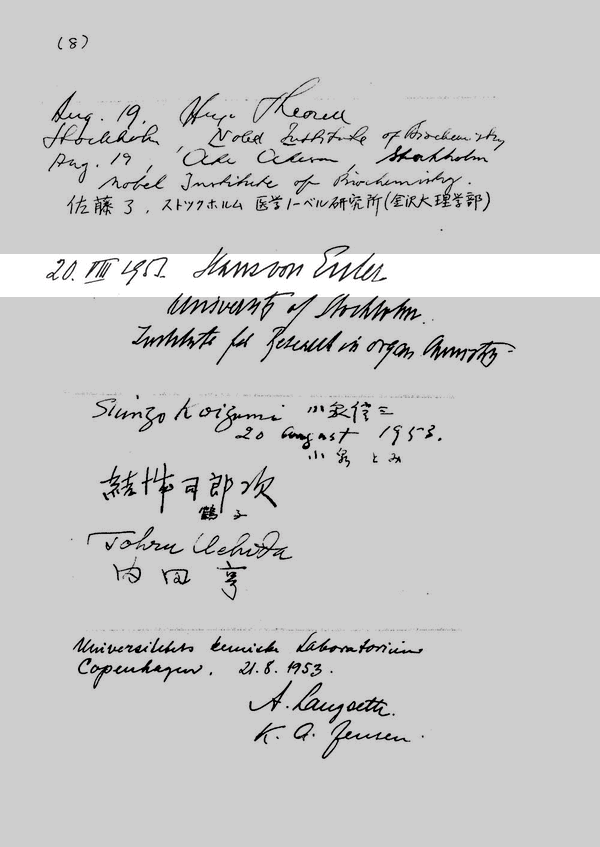 (8)
Aug. 19, Hugo Theorell
Stockholm, Nobel Institute of Biochemistry
Aug. 19, Åke Åkeson, Stockholm
Nobel Institute of Biochemistry.
佐藤了, ストツクホルム 医学ノーベル研究所(金沢大理学部)
20. VIII 1953. Hans von Euler
University of Stockholm.
Institute for Research in organ Chemistry
Shinzo Koizumi 小泉信三
20 august 1953.
小泉とみ
結城司郎次
鶴子
Tohru Uchida
内田 亨
Universitetets kemiske Laboratorium
Copenhagen. 21.8.1953.
A. Langseth.
K. A. Jensen.